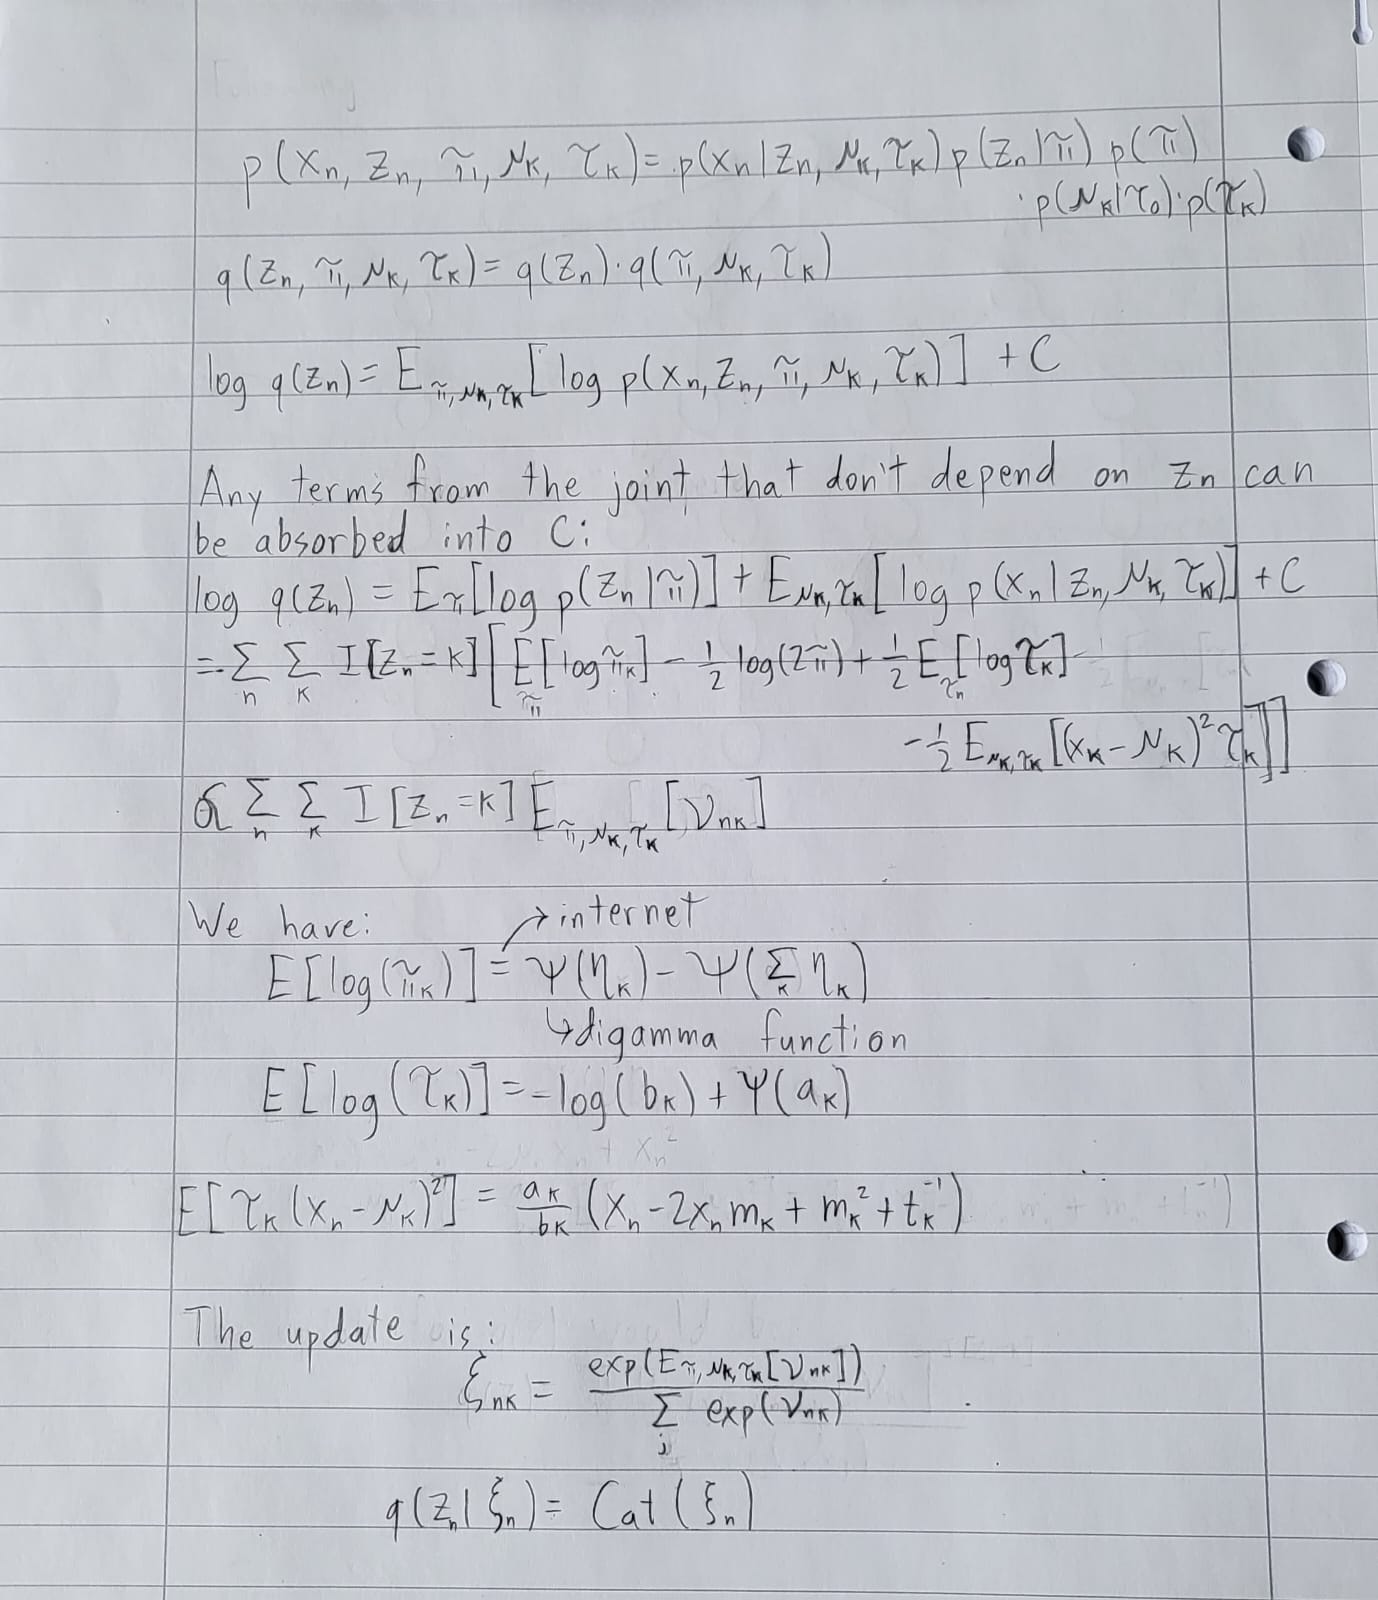 p(xₙ, zₙ, π, μₖ, τₖ) = p(xₙ|zₙ, μₖ, τₖ) p(zₙ|π) p(π)
· p(μₖ|τ₀) · p(τₖ)
q(zₙ, π, μₖ, τₖ) = q(zₙ) · q(π, μₖ, τₖ)
log q(zₙ) = E_{π, μₖ, τₖ} [log p(xₙ, zₙ, π, μₖ, τₖ)] + C
Any terms from the joint that don't depend on zₙ can
be absorbed into C:
log q(zₙ) = E_π [log p(zₙ|π)] + E_{μₖ, τₖ} [log p(xₙ|zₙ, μₖ, τₖ)] + C
= Σₙ Σₖ I[zₙ = k] [E_π [log πₖ] - 1/2 log(2π) + 1/2 E_{τₙ} [log τₖ]
- 1/2 E_{μₖ, τₖ} [(xₖ - μₖ)² τₖ]]
∝ Σₙ Σₖ I[zₙ = k] E_{π, μₖ, τₖ} [νₙₖ]
We have: → internet
E[log(πₖ)] = Ψ(ηₖ) - Ψ(Σₖ ηₖ)
↳ digamma function
E[log(τₖ)] = -log(bₖ) + Ψ(aₖ)
E[τₖ(xₙ - μₖ)²] = aₖ/bₖ (xₙ - 2xₙmₖ + mₖ² + tₖ⁻¹)
The update is:
ξₙₖ = exp(E_{π, μₖ, τₖ} [νₙₖ]) / Σⱼ exp(νₙₖ)
q(zₙ|ξₙ) = Cat(ξₙ)